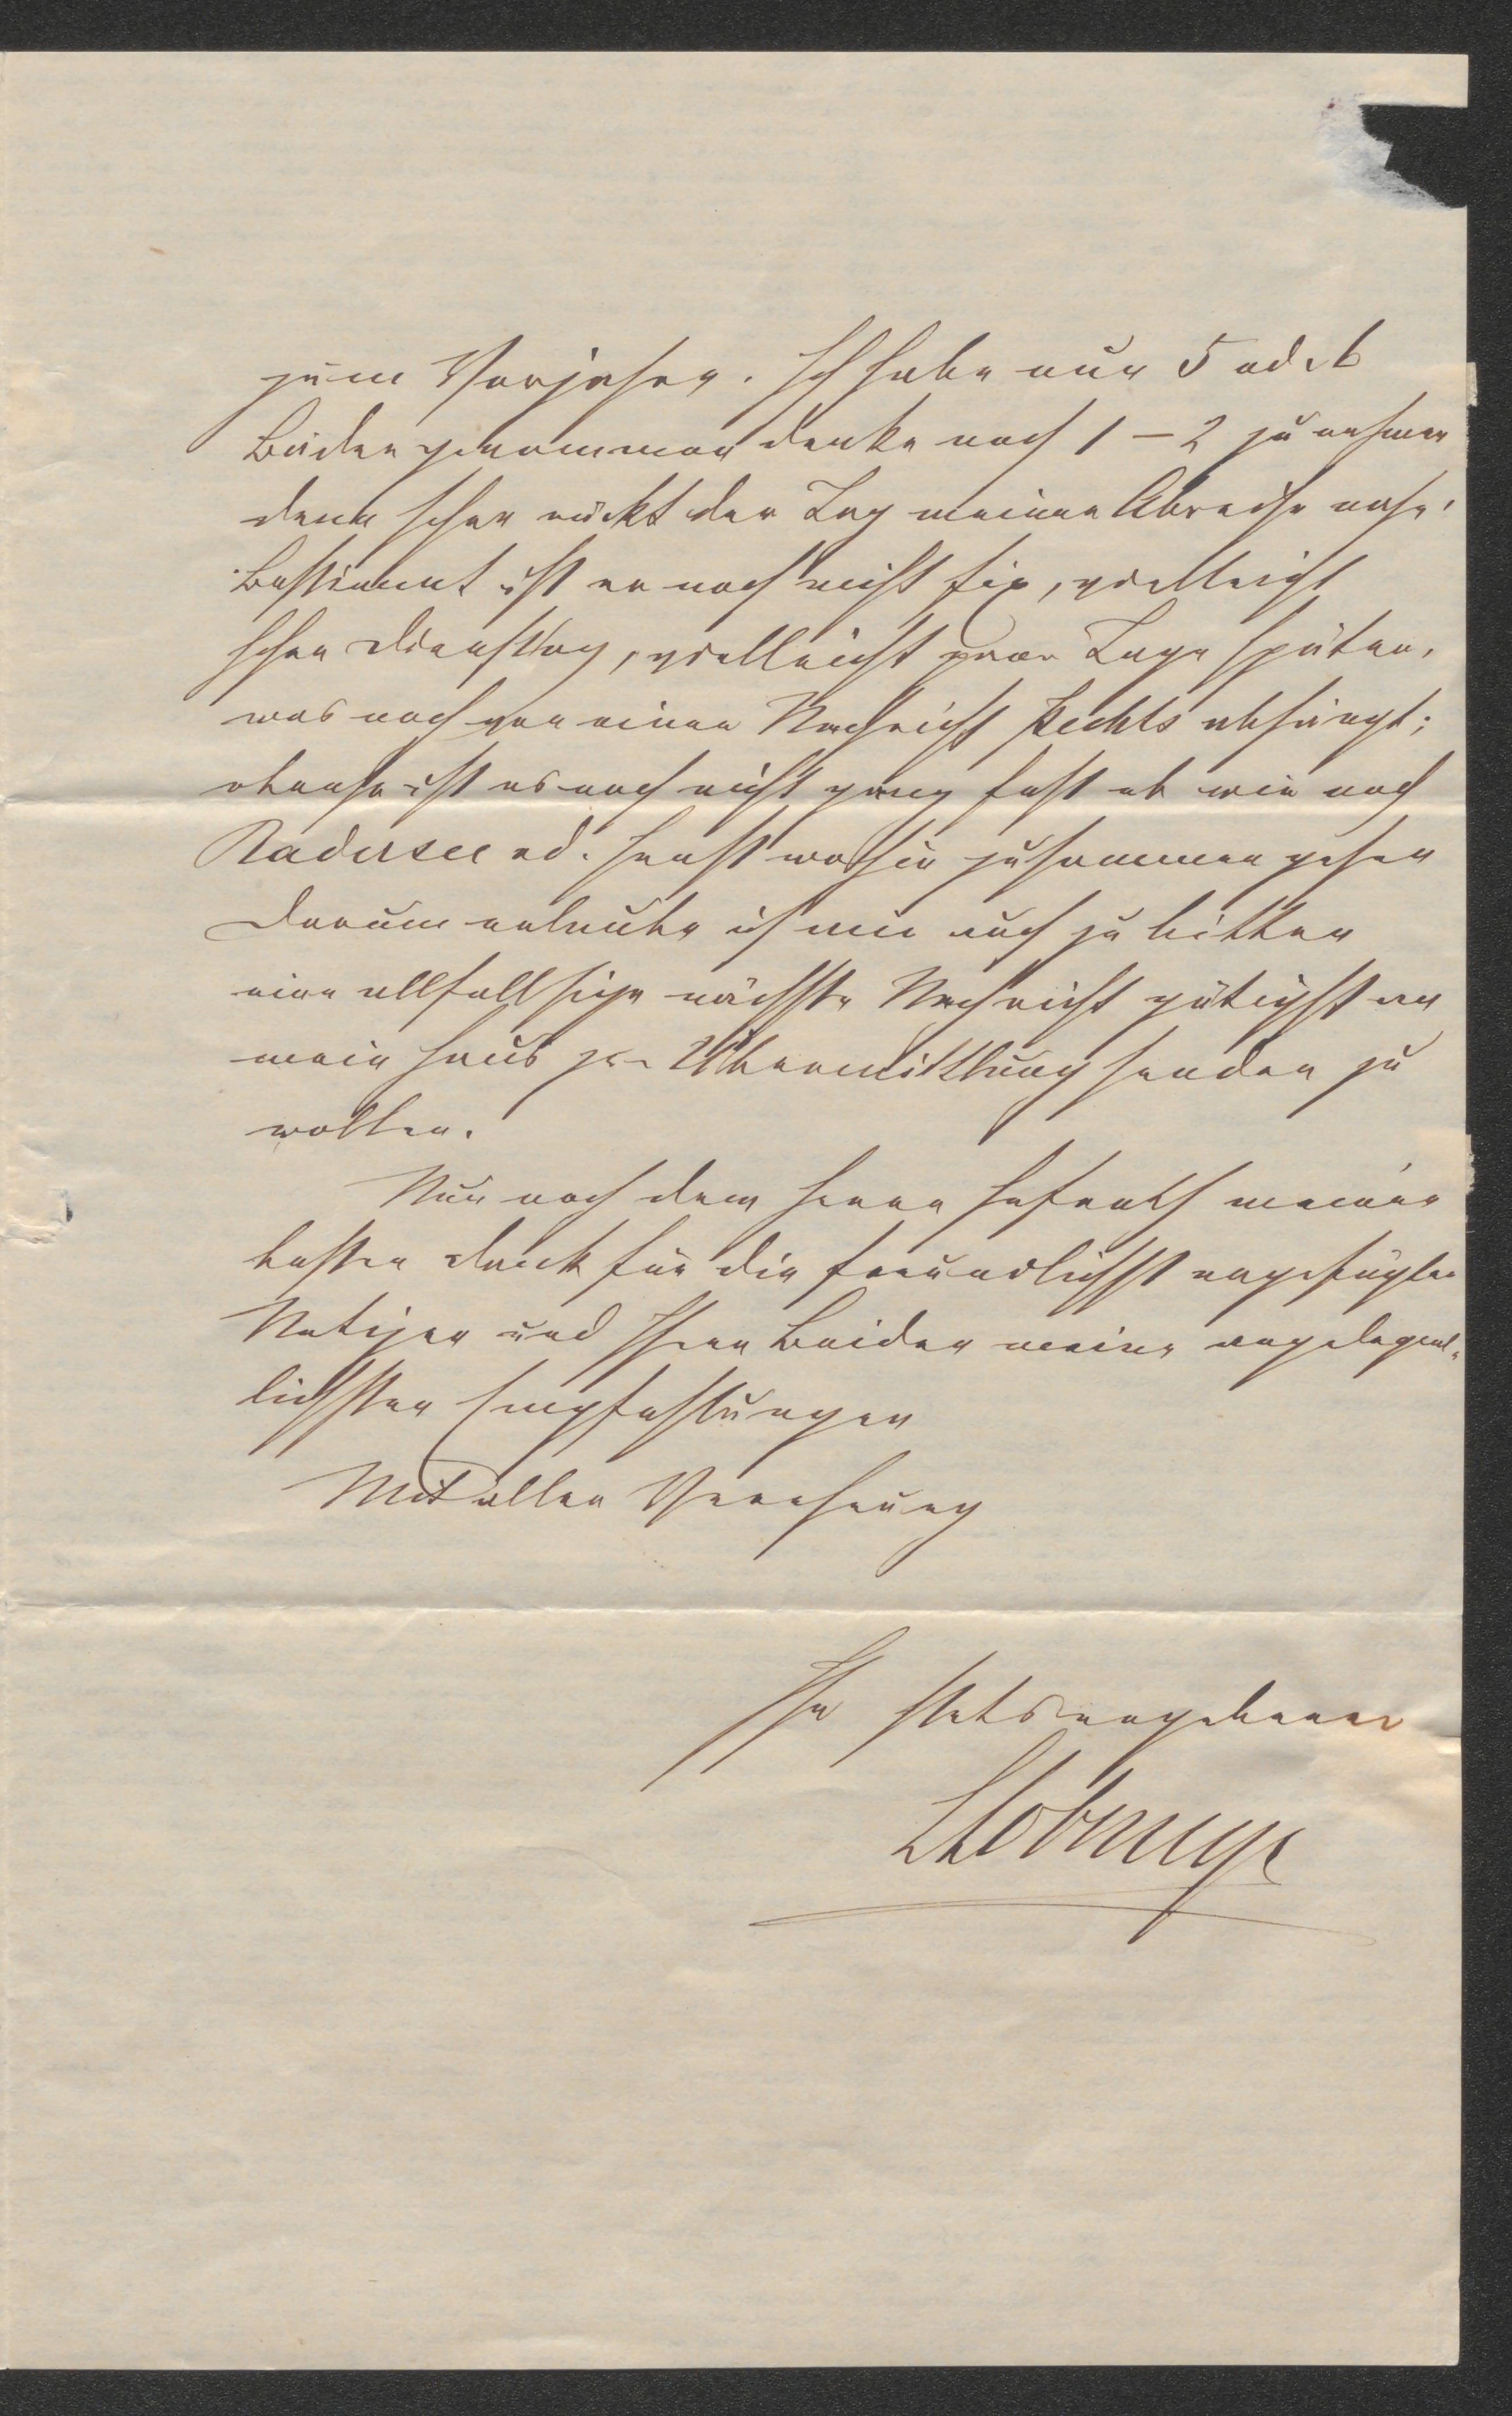 zum Vorjahre. Ich habe nur 5 od. 6
Bäder genommen denke noch 1 – 2 zu nehmen
denn schon rückt der Tag meiner Abreise nahe.
Bestimmt ist er noch nicht fix, vielleicht
schon Dienstag, vielleicht paar Tage später,
was noch von einer Nachricht Hechts abhängt;
ebenso ist es noch nicht ganz fest ob wir nach
Badersee od. sonst wohin zusammen gehen
Darum erlaube ich mir auch zu bitten
eine allfallsige nächste Nachricht gütigst an
mein Haus zur Übermittlung senden zu
wollen.
Nun noch dem Herrn Hofrath meinen
besten Dank für die freundlichst angefügten
Notizen und Ihnen Beiden meine angelegent-
lichsten Empfehlungen
Mit aller Verehrung
Ihr stets ergebener
LLobmeyr